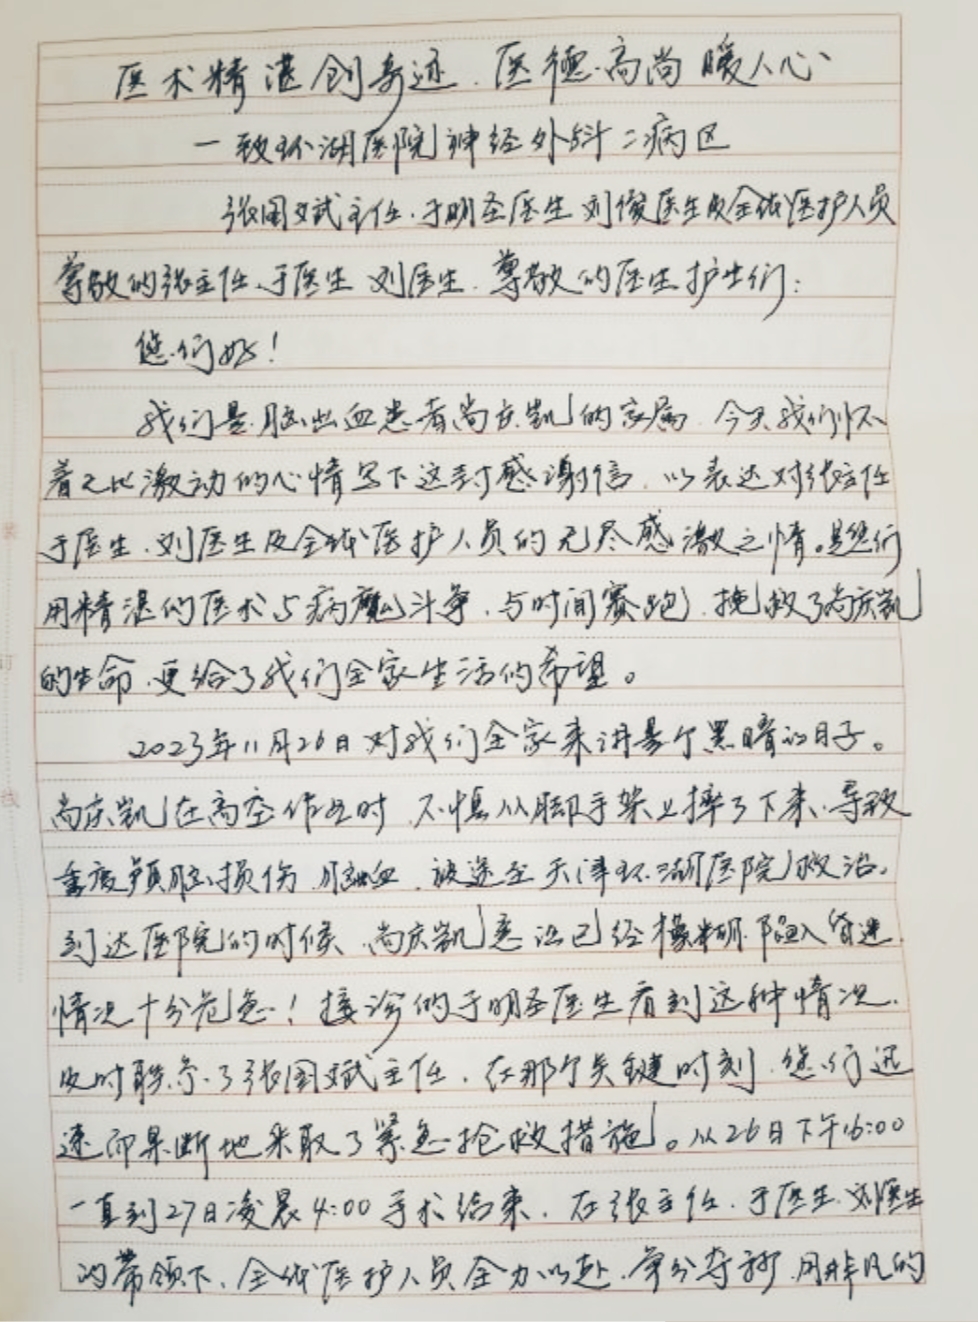 医术精湛创奇迹、医德高尚暖人心
—致环湖医院神经外科二病区
张国斌主任、于明圣医生 刘俊医生及全体医护人员
尊敬的张主任、于医生 刘医生、尊敬的医生护士们：
您们好！
我们是脑出血患者尚庆凯的家属，今天我们怀
着无比激动的心情写下这封感谢信，以表达对张主任
于医生、刘医生及全体医护人员的无尽感激之情。是您们
用精湛的医术与病魔斗争，与时间赛跑，挽救了尚庆凯
的生命，更给了我们全家生活的希望。
2023年11月26日对我们全家来讲是个黑暗的日子。
尚庆凯在高空作业时，不慎从脚手架上摔了下来，导致
重度颅脑损伤，脑出血，被送至天津环湖医院救治。
到达医院的时候，尚庆凯意识已经模糊，陷入昏迷，
情况十分危急！接诊的于明圣医生看到这种情况，
及时联系了张国斌主任，在那个关键时刻，您们迅
速而果断地采取了紧急抢救措施。从26日下午16:00
一直到27日凌晨4:00手术结束，在张主任、于医生、刘医生
的带领下，全体医护人员全力以赴，争分夺秒，用非凡的
装
订
线